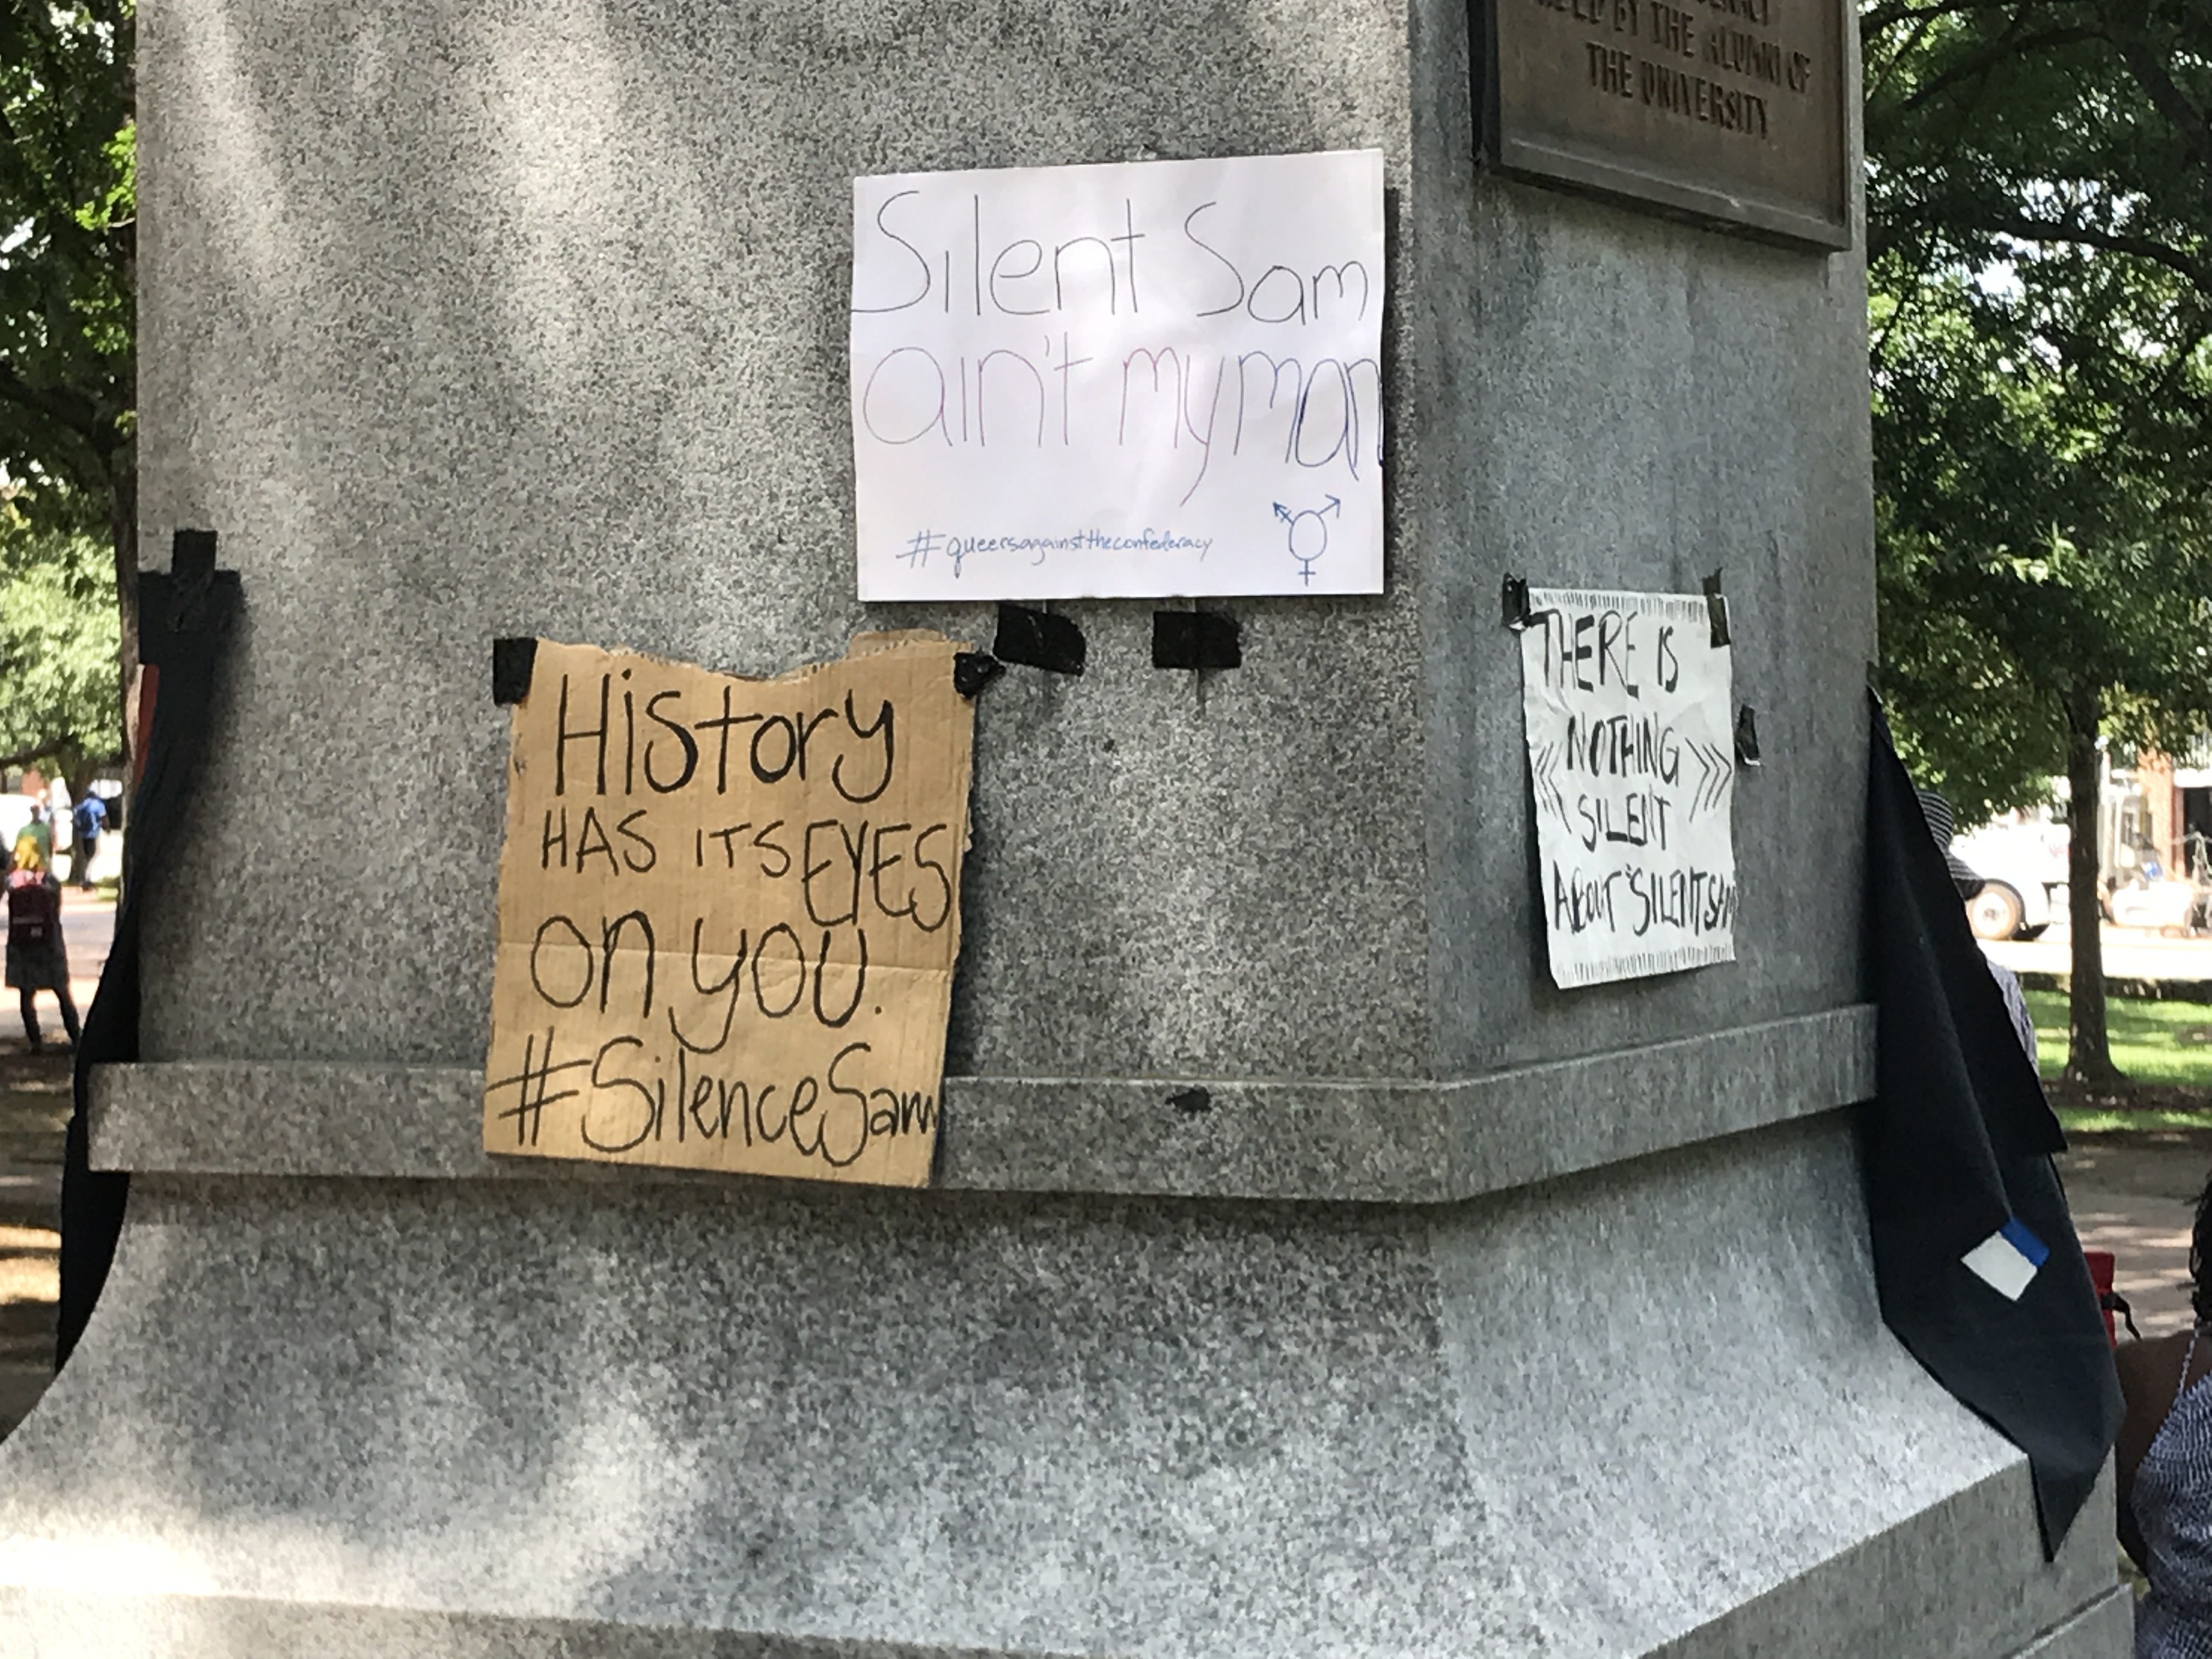 BY THE ALUMNI OF
THE UNIVERSITY
Silent Sam
ain't my man
#queersagainsttheconfederacy
History
HAS ITS EYES
on you.
#SilenceSam
THERE IS
NOTHING
SILENT
ABOUT "SILENT SAM